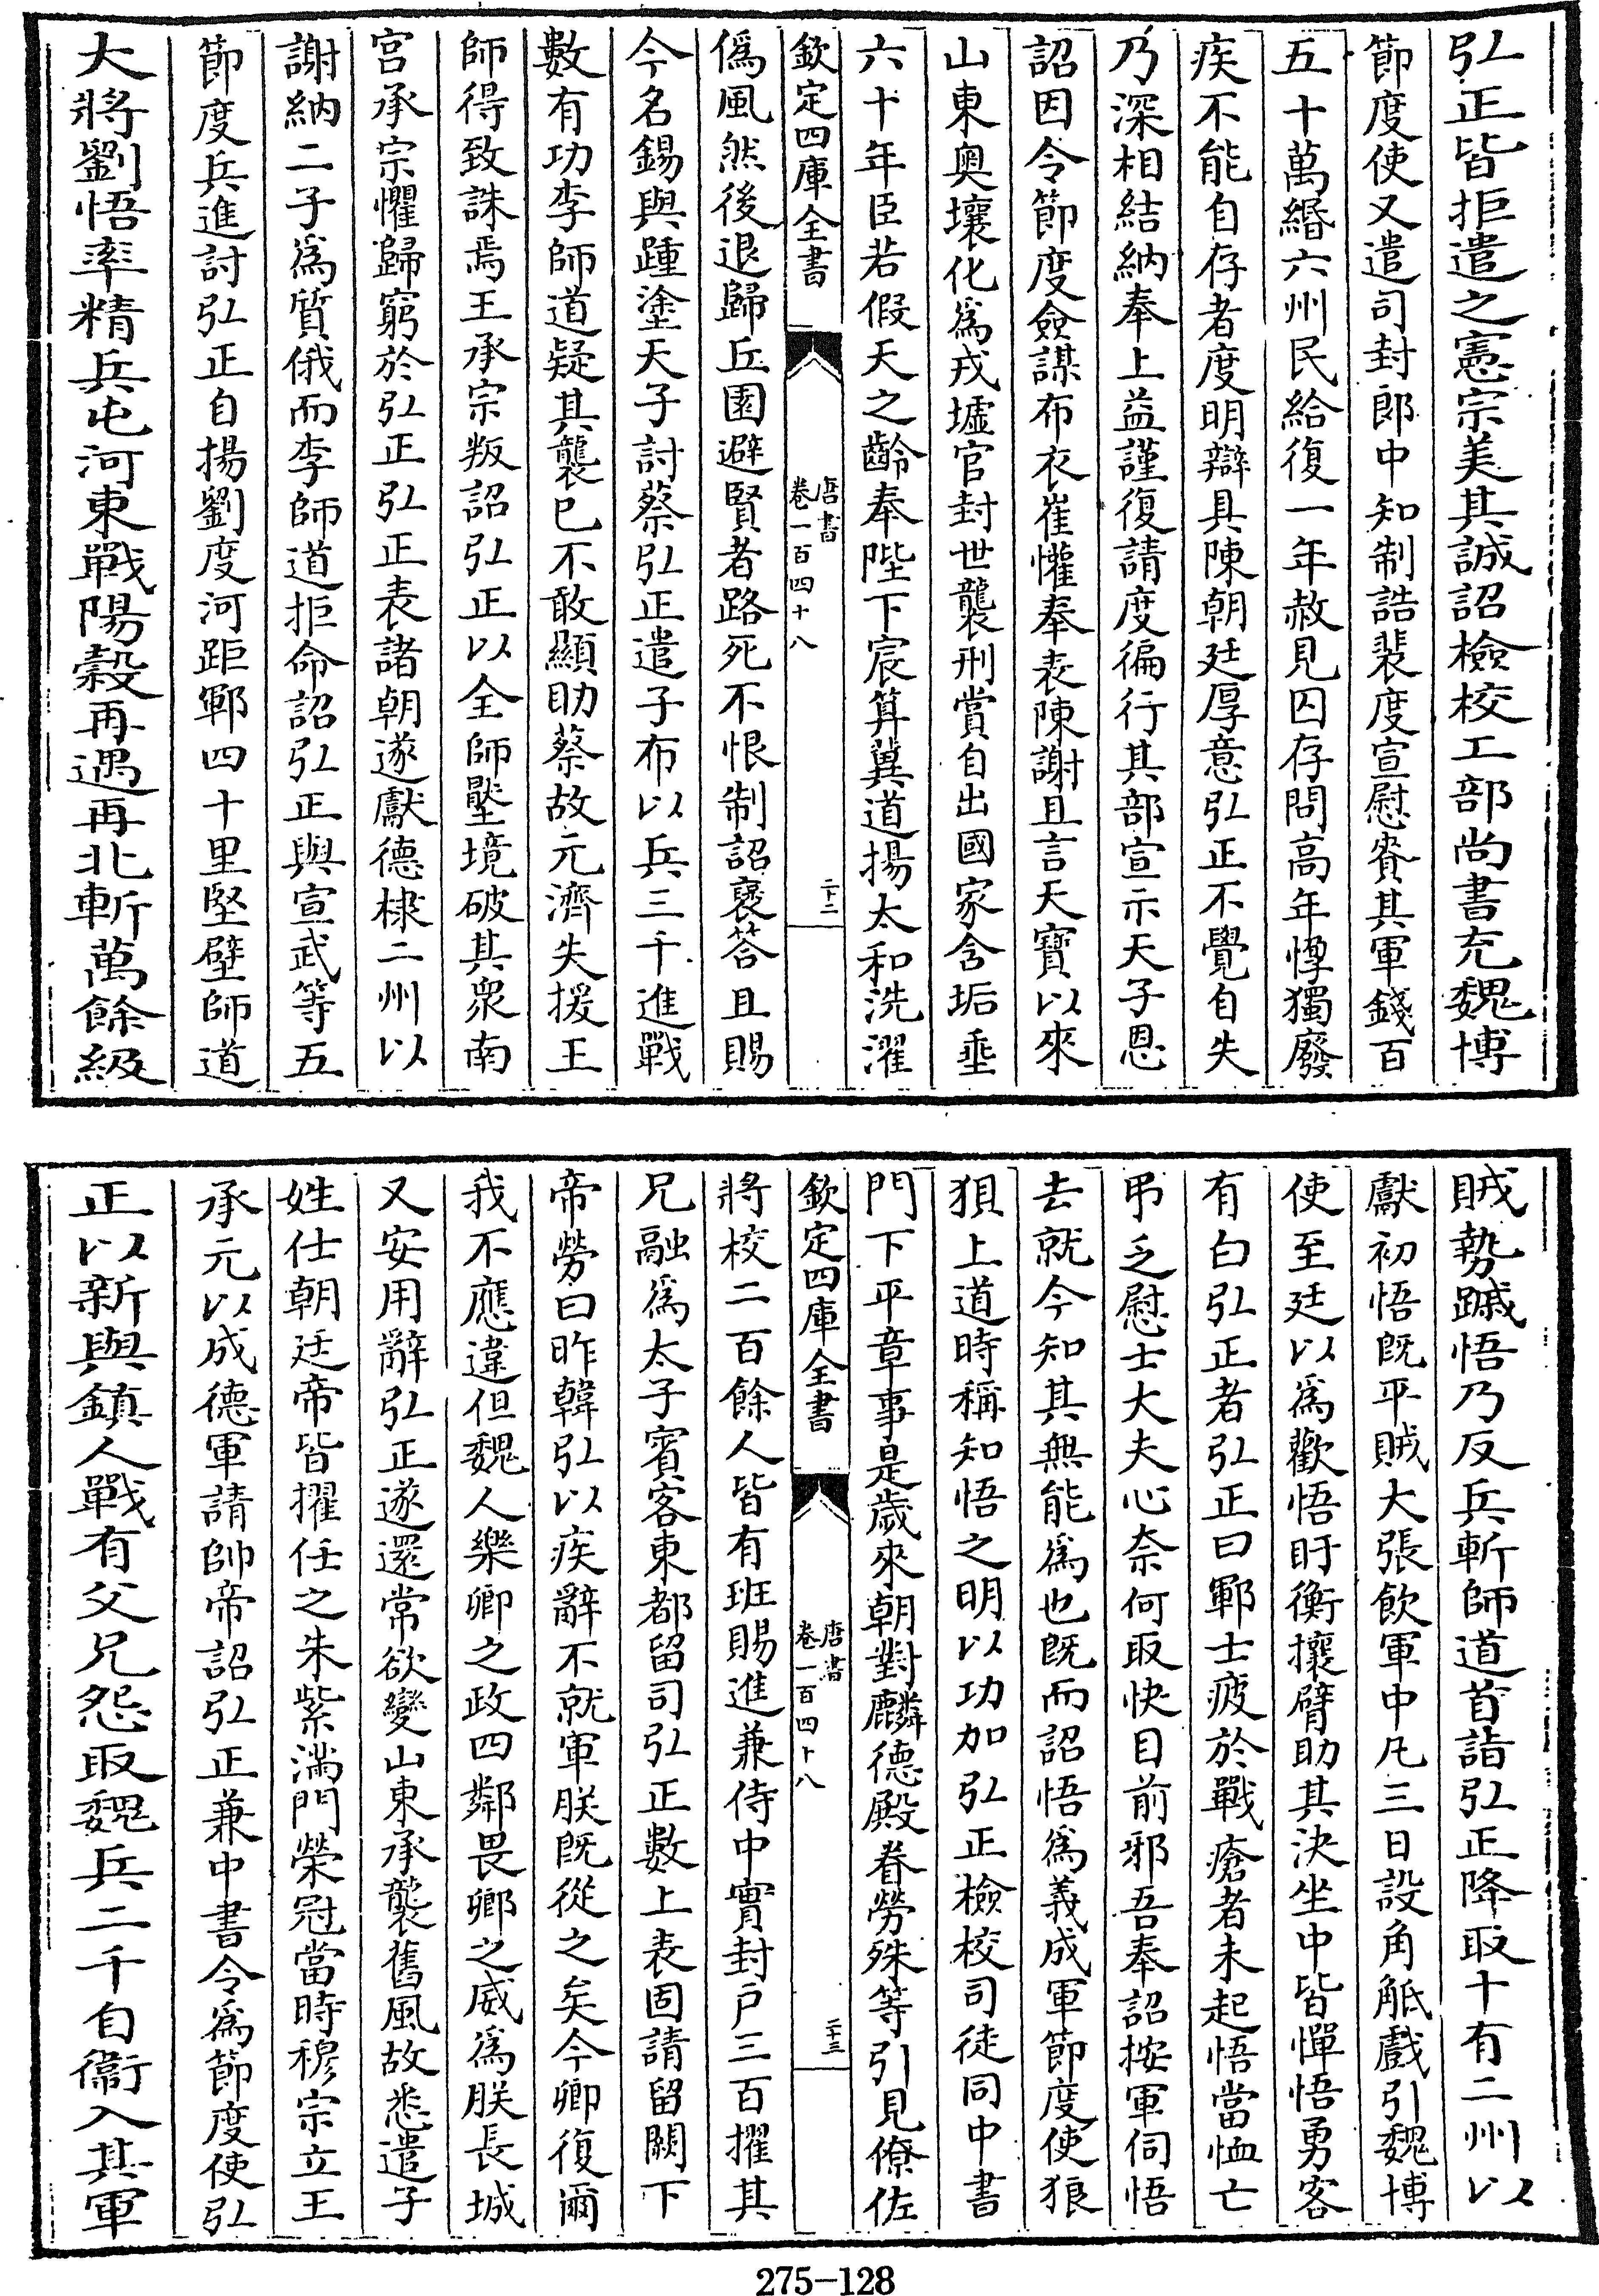 弘正皆拒遣之憲宗美其誠詔檢校工部尚書充魏博
節度使又遣司封郎中知制誥裴度宣慰賚其軍錢百
五十萬緡六州民給復一年赦見囚存問高年惸獨廢
疾不能自存者度明辯具陳朝廷厚意弘正不覺自失
乃深相結納奉上益謹復請度徧行其部宣示天子恩
詔因令節度僉謀布衣崔懽奉表陳謝且言天寶以來
山東奥壤化為戎墟官封世襲刑賞自出國家含垢垂
六十年臣若假天之齡奉陛下宸算冀道揚太和洗濯
欽定四庫全書
唐書
卷一百四十八
二十二
偽風然後退歸丘園避賢者路死不恨制詔襃答且賜
今名錫與踵塗天子討蔡弘正遣子布以兵三千進戰
數有功李師道疑其襲已不敢顯助蔡故元濟失援王
師得致誅焉王承宗叛詔弘正以全師壓境破其衆南
宮承宗懼歸窮於弘正弘正表諸朝遂獻德棣二州以
謝納二子為質俄而李師道拒命詔弘正與宣武等五
節度兵進討弘正自揚劉度河距鄆四十里堅壁師道
大將劉悟率精兵屯河東戰陽穀再遇再北斬萬餘級
賊勢蹙悟乃反兵斬師道首詣弘正降取十有二州以
獻初悟既平賊大張飲軍中凡三日設角觝戲引魏博
使至廷以為歡悟盱衡攘臂助其決坐中皆憚悟勇客
有白弘正者弘正曰鄆士疲於戰瘡者未起悟當恤亡
弔乏慰士大夫心奈何取快目前邪吾奉詔按軍伺悟
去就今知其無能為也既而詔悟為義成軍節度使狼
狽上道時稱知悟之明以功加弘正檢校司徒同中書
門下平章事是歲來朝對麟德殿眷勞殊等引見僚佐
欽定四庫全書
唐書
卷一百四十八
二十三
將校二百餘人皆有班賜進兼侍中實封戶三百擢其
兄融為太子賓客東都留司弘正數上表固請留闕下
帝勞曰昨韓弘以疾辭不就軍朕既從之矣今卿復爾
我不應違但魏人樂卿之政四鄰畏卿之威為朕長城
又安用辭弘正遂還常欲變山東承襲舊風故悉遣子
姓仕朝廷帝皆擢任之朱紫滿門榮冠當時穆宗立王
承元以成德軍請帥帝詔弘正兼中書令為節度使弘
正以新與鎮人戰有父兄怨取魏兵二千自衞入其軍
275-128